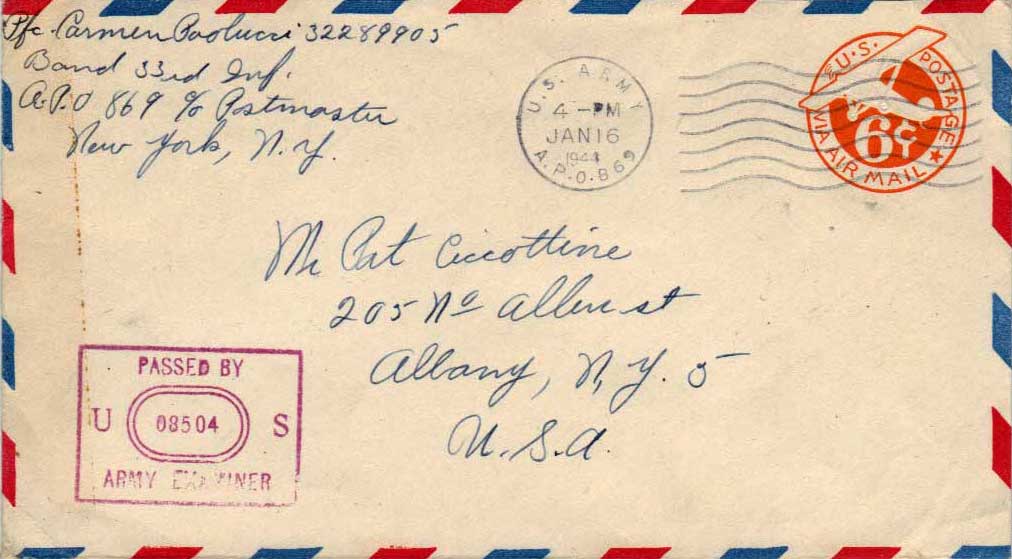 Pfc. Carmen Paolucci 32289905
Band 33rd Inf.
A.P.O 869 c/o Postmaster
New York, N.Y.
U.S. ARMY
4 - PM
JAN 16
1944
A.P.O. 869
U.S. POSTAGE
6¢
VIA AIR MAIL
Mr Pat Ciccottine
205 No Allen st
Albany, N.Y. 5
U.S.A.
PASSED BY
U 08504 S
ARMY EXAMINER